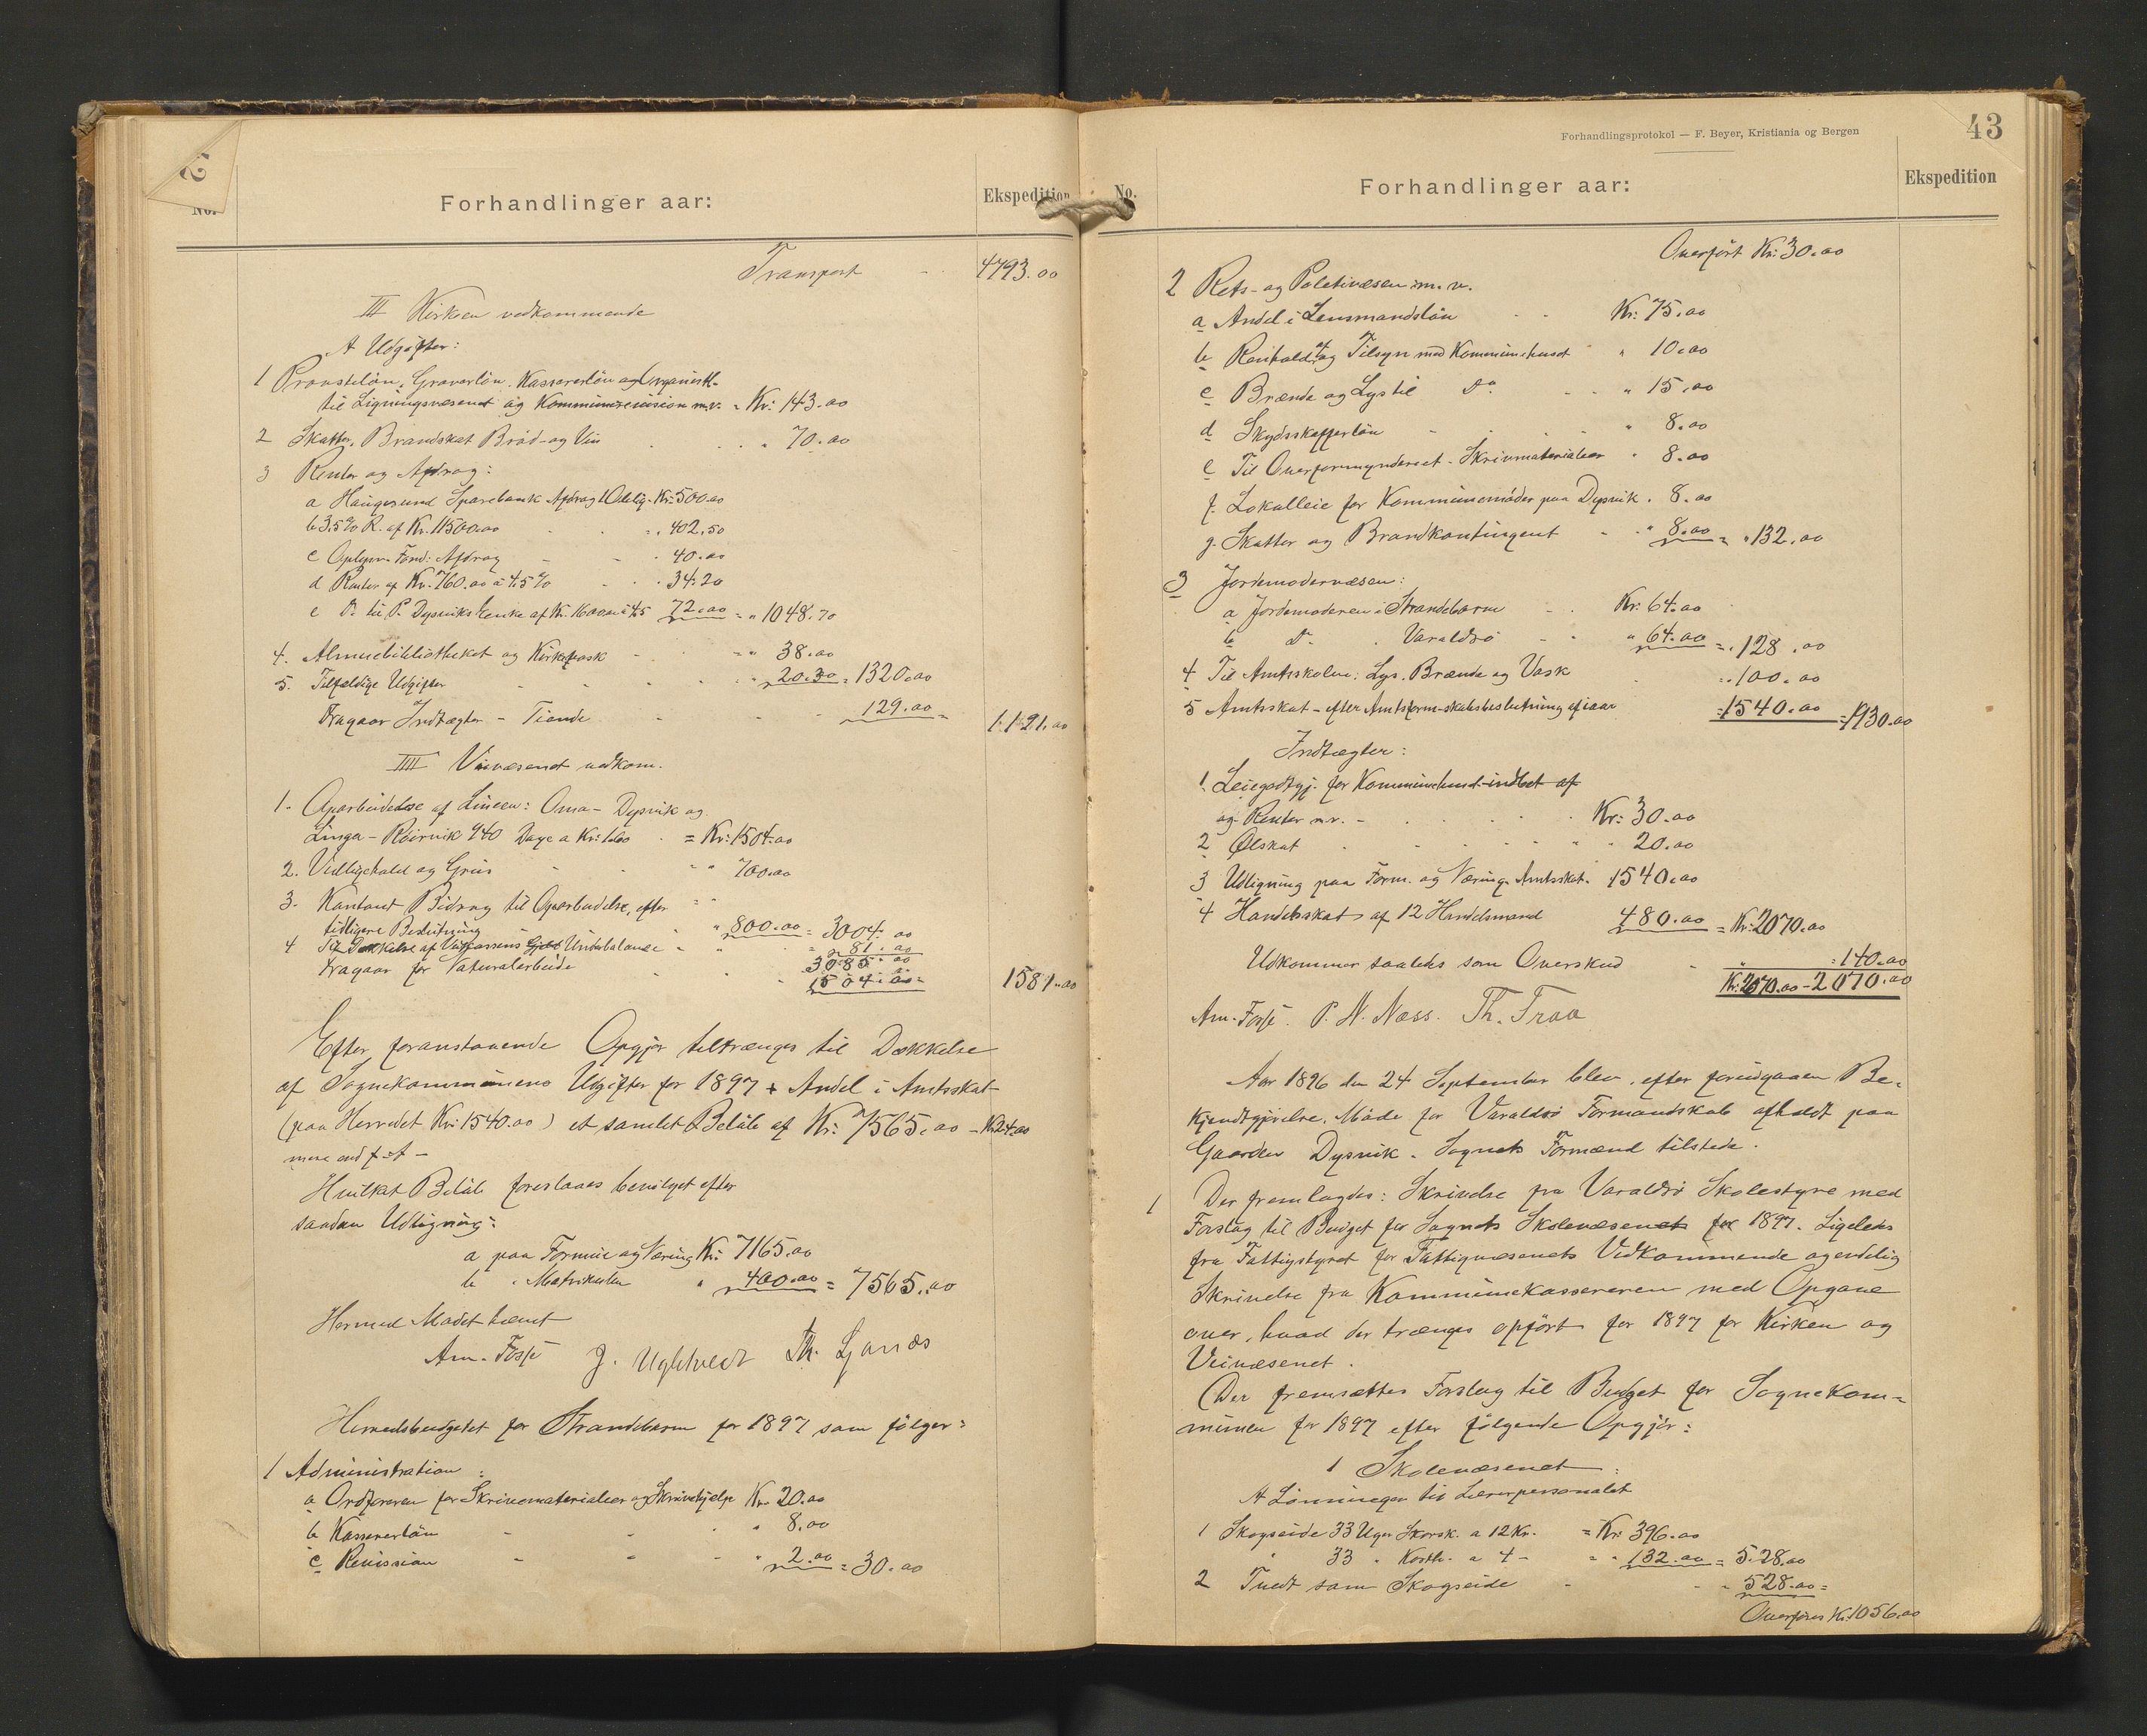 No.
Forhandlinger aar:
Ekspedition
Transport 4793.00
III Kirken vedkommende
A Udgifter:
1 Provstelön, Graverlön, Kassererlön og
til Ligningsvæsenet og Kommunerevision m.v. = Kr: 143.00
2 Skatter, Brandskat Bröd- og Vin " 70.00
3 Renter og Afdrag:
a Haugesund Sparebank Afdrag 1 Oblig. Kr: 500.00
b 3.5% R. af Kr. 11500.00 = " 402.50
c Oplysn. Fond: Afdrag " 40.00
d Renter af Kr. 760.00 a 4.5% " 34.20
e Do til P. Dysviks Enke af Kr. 1600.00 a 4.5 72.00 = " 1048.70
4. Almuebibliotheket og Kirkevask " 38.00
5. Tilfældige Udgifter " 20.30 = 1320.00
Fragaar Indtægter - Tiende 129.00 =
1191.00
IIII Veivæsenet vedkom.
1. Oparbeidelse af Linien: Oma - Dysvik og
Linga - Röirvik 940 Dage a Kr: 1.60 = Kr: 1504.00
2. Vedligehold og Grus " 700.00
3. Kontant Bidrag til Oparbeidelse, efter
tidligere Beslutning " 800.00 = 3004.00
4 Til Dækkelse af Veikassens Gjeld Underbalance " 81.00
3085.00
Fragaar for Naturalarbeide 1504.00 =
1581.00
Efter foranstaaende Opgjör tiltrænges til Dækkelse
af Sognekommunens Udgifter for 1897 + Andel i Amtsskat
(paa Herredet Kr: 1540.00) et samlet Belöb af Kr: 7565.00 - Kr 24.00
mere end f. A -
Hvilket Belöb foreslaaes bevilget efter
saadan Udligning:
a paa Formue og Næring Kr: 7165.00
b " Matrikulen " 400.00 = 7565.00
Hermed Mödet hævet
Am. Fosse J. Ugletvedt Th. Ljones
Herredsbudgetet for Strandebarm for 1897 som fölger:
1 Administration:
a Ordföreren for Skrivematerialier og Skrivehjelp Kr. 20.00
b Kassererlön " 8.00
c Revission " 2.00 = 30.00
Forhandlingsprotokol — F. Beyer, Kristiania og Bergen
43
No.
Forhandlinger aar:
Ekspedition
Overfört Kr: 30.00
2 Rets- og Politivæsen m. v.
a Andel i Lensmandslön Kr: 75.00
b Renhold af og Tilsyn med Kommunehuset " 10.00
c Brænde og Lys til Do " 15.00
d Skydsskafferlön " 8.00
e Til Overformynderiet - Skrivmaterialier " 8.00
f. Lokalleie for Kommunemöder paa Dysvik " 8.00
g. Skatter og Brandkontingent " 8.00 = " 132.00
3 Jordemodervæsen:
a Jordemoderen i Strandebarm Kr: 64.00
b Do " Varaldsö " 64.00 = " 128.00
4 Til Amtsskolen: Lys. Brænde og Vask = " 100.00
5 Amtsskat - efter Amtsform-skabsbeslutning af iaar = 1540.00 = 1930.00
Indtægter:
1. Leiegodtgj. for Kommunehuset indbet af
og Renter m.v. - Kr: 30.00
2 Ölskat " 20.00
3 Udligning paa Form. og Næring. Amtsskat. 1540.00
4 Handelsskat af 12 Handelsmænd 480.00 = Kr: 2070.00
Udkommer saaledes som Overskud " = 140.00
Kr: 2070.00 - 2070.00
Am. Fosse. P. N. Næss. Th. Traa
Aar 1896 den 24 September blev, efter foregaaen Be-
kjendtgjörelse, Möde for Varaldsö Formandskab afholdt paa
Gaarden Dysvik. Sognets Formænd tilstede.
1 Der fremlagdes: Skrivelse fra Varaldsö Skolestyre med
Forslag til Budget for Sognets Skolevæsenets for 1897. Ligeledes
fra Fattigstyret for Fattigvæsenets Vedkommende og endelig
Skrivelse fra Kommunekassereren med Opgave
over, hvad der trænges opfört for 1897 for Kirken og
Veivæsenet.
Der fremsættes Forslag til Budget for Sognekom-
munen for 1897 efter fölgende Opgjör:
1 Skolevæsenet:
A Lönninger til Lærerpersonalet
1 Skogseide 33 Uger Skorsk. a 12 Kr. = Kr: 396.00
33 " Kosth. a 4 - = " 132.00 = 528.00
2 Tvedt som Skogseide 528.00 =
Overföres Kr. 1056.00